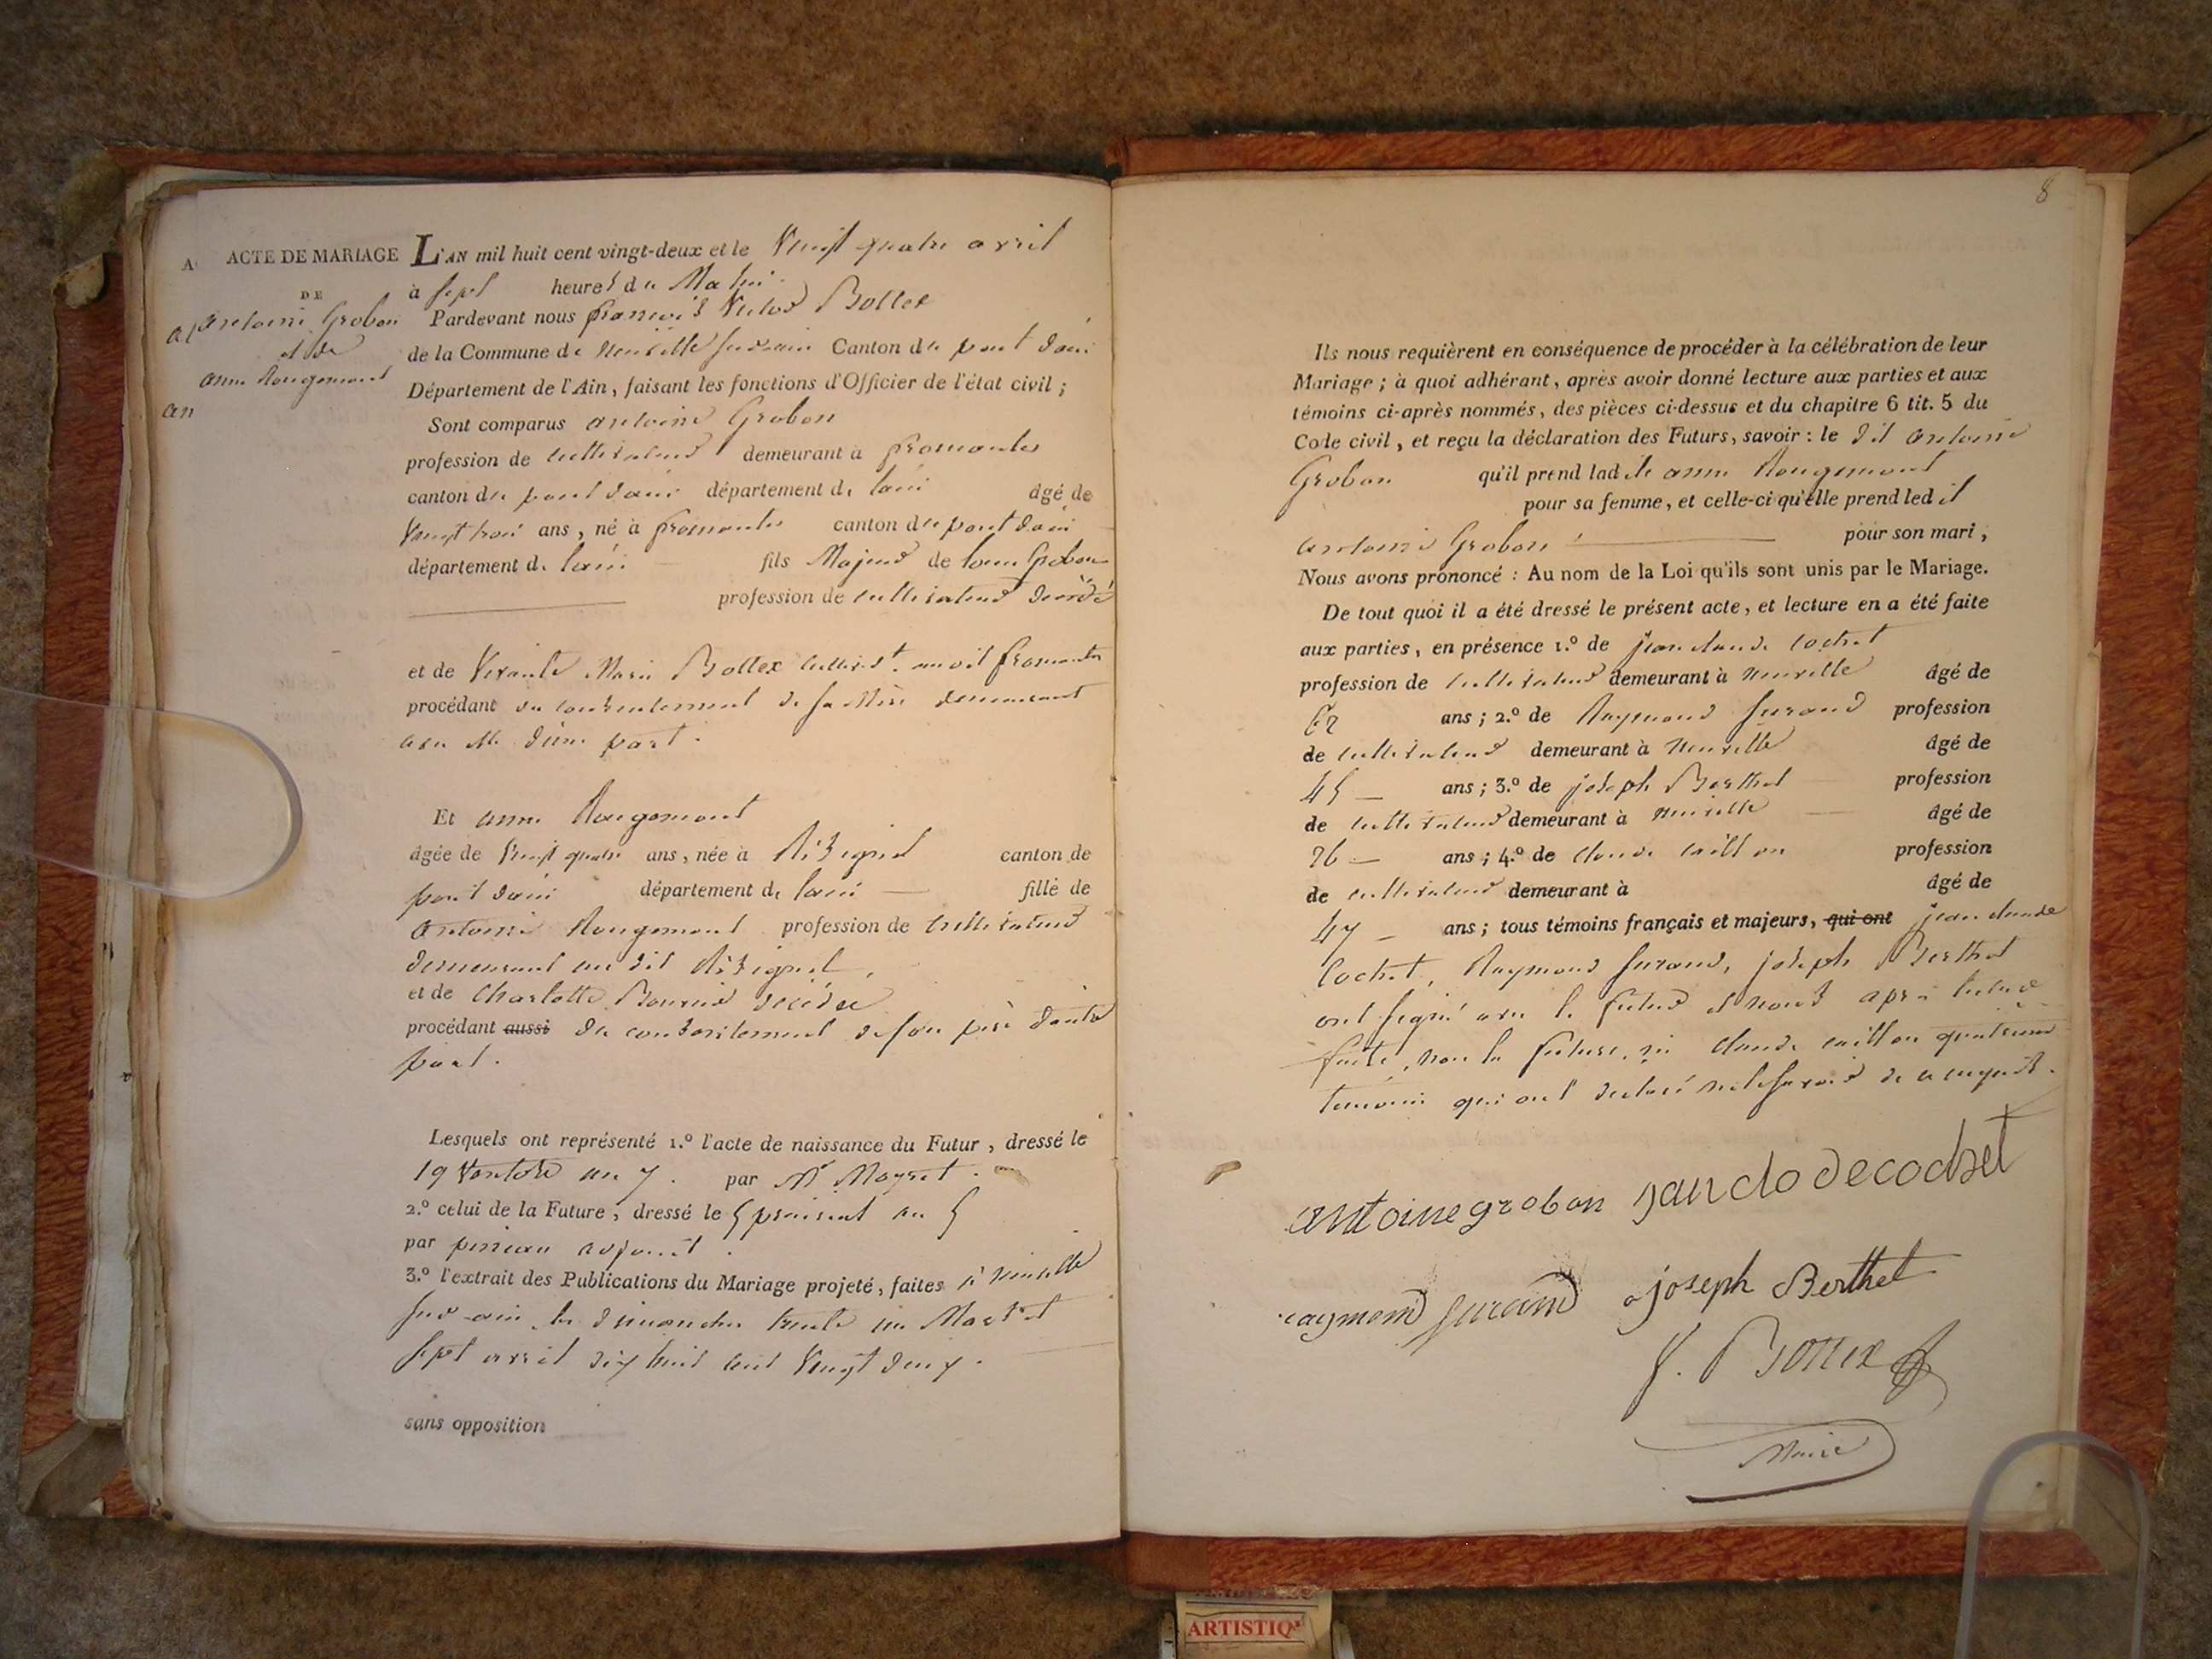 ACTE DE MARIAGE
DE
antoine Grobon
et de
anne Rougemont
an
L'AN mil huit cent vingt-deux et le Vingt quatre avril
à sept heures du Matin
Pardevant nous françois Victor Bollex
de la Commune de Neuville sur ain Canton du pont dain
Département de l'Ain, faisant les fonctions d'Officier de l'état civil ;
Sont comparus antoine Grobon
profession de cultivateur demeurant à fromentes
canton du pont dain département de lain âgé de
Vingt trois ans, né à fromentes canton du pont dain
département de lain fils Majeur de Grobon
profession de cultivateur décédé
et de Marie Bollex audit fromentes
procédant du consentement de sa Mère demeurant
avec elle d'une part.
Et anne Rougemont
âgée de Vingt quatre ans, née à Résignel canton de
pont dain département de lain fille de
antoine Rougemont profession de cultivateur
demeurant au dit Résignel,
et de Charlotte décédée
procédant aussi du consentement de son père dautre
part.
Lesquels ont représenté 1.º l'acte de naissance du Futur, dressé le
19 Ventose an 7. par Mr Moyret.
2.º celui de la Future, dressé le 5 prairial an 5
par adjoint.
3.º l'extrait des Publications du Mariage projeté, faites à neuville
sur ain les dimanches trente un Mars et
sept avril dix huit cent Vingt deux.
sans opposition
8
Ils nous requièrent en conséquence de procéder à la célébration de leur
Mariage ; à quoi adhérant, après avoir donné lecture aux parties et aux
témoins ci-après nommés, des pièces ci-dessus et du chapitre 6 tit. 5 du
Code civil, et reçu la déclaration des Futurs, savoir : le dit antoine
Grobon qu'il prend ladite anne Rougemont
pour sa femme, et celle-ci qu'elle prend ledit
antoine Grobon pour son mari,
Nous avons prononcé : Au nom de la Loi qu'ils sont unis par le Mariage.
De tout quoi il a été dressé le présent acte, et lecture en a été faite
aux parties, en présence 1.º de jean claude cochet
profession de cultivateur demeurant à neuville âgé de
ans ; 2.º de Raymond furand profession
de cultivateur demeurant à neuville âgé de
45 ans ; 3.º de joseph Berthet profession
de cultivateur demeurant à neuville âgé de
26 ans ; 4.º de claude caillon profession
de cultivateur demeurant à âgé de
47 ans ; tous témoins français et majeurs, qui ont jean claude
Cochet, Raymond furand, joseph Berthet
ont signé avec le futur et nous après lecture
faite, non la future, ni claude caillon quatrieme
temoin qui ont declaré ne le savoir de ce enquis.
antoine grobon jan clo de codset
raymond furand joseph Berthet
f. Bollex
Maire
ARTISTIQ